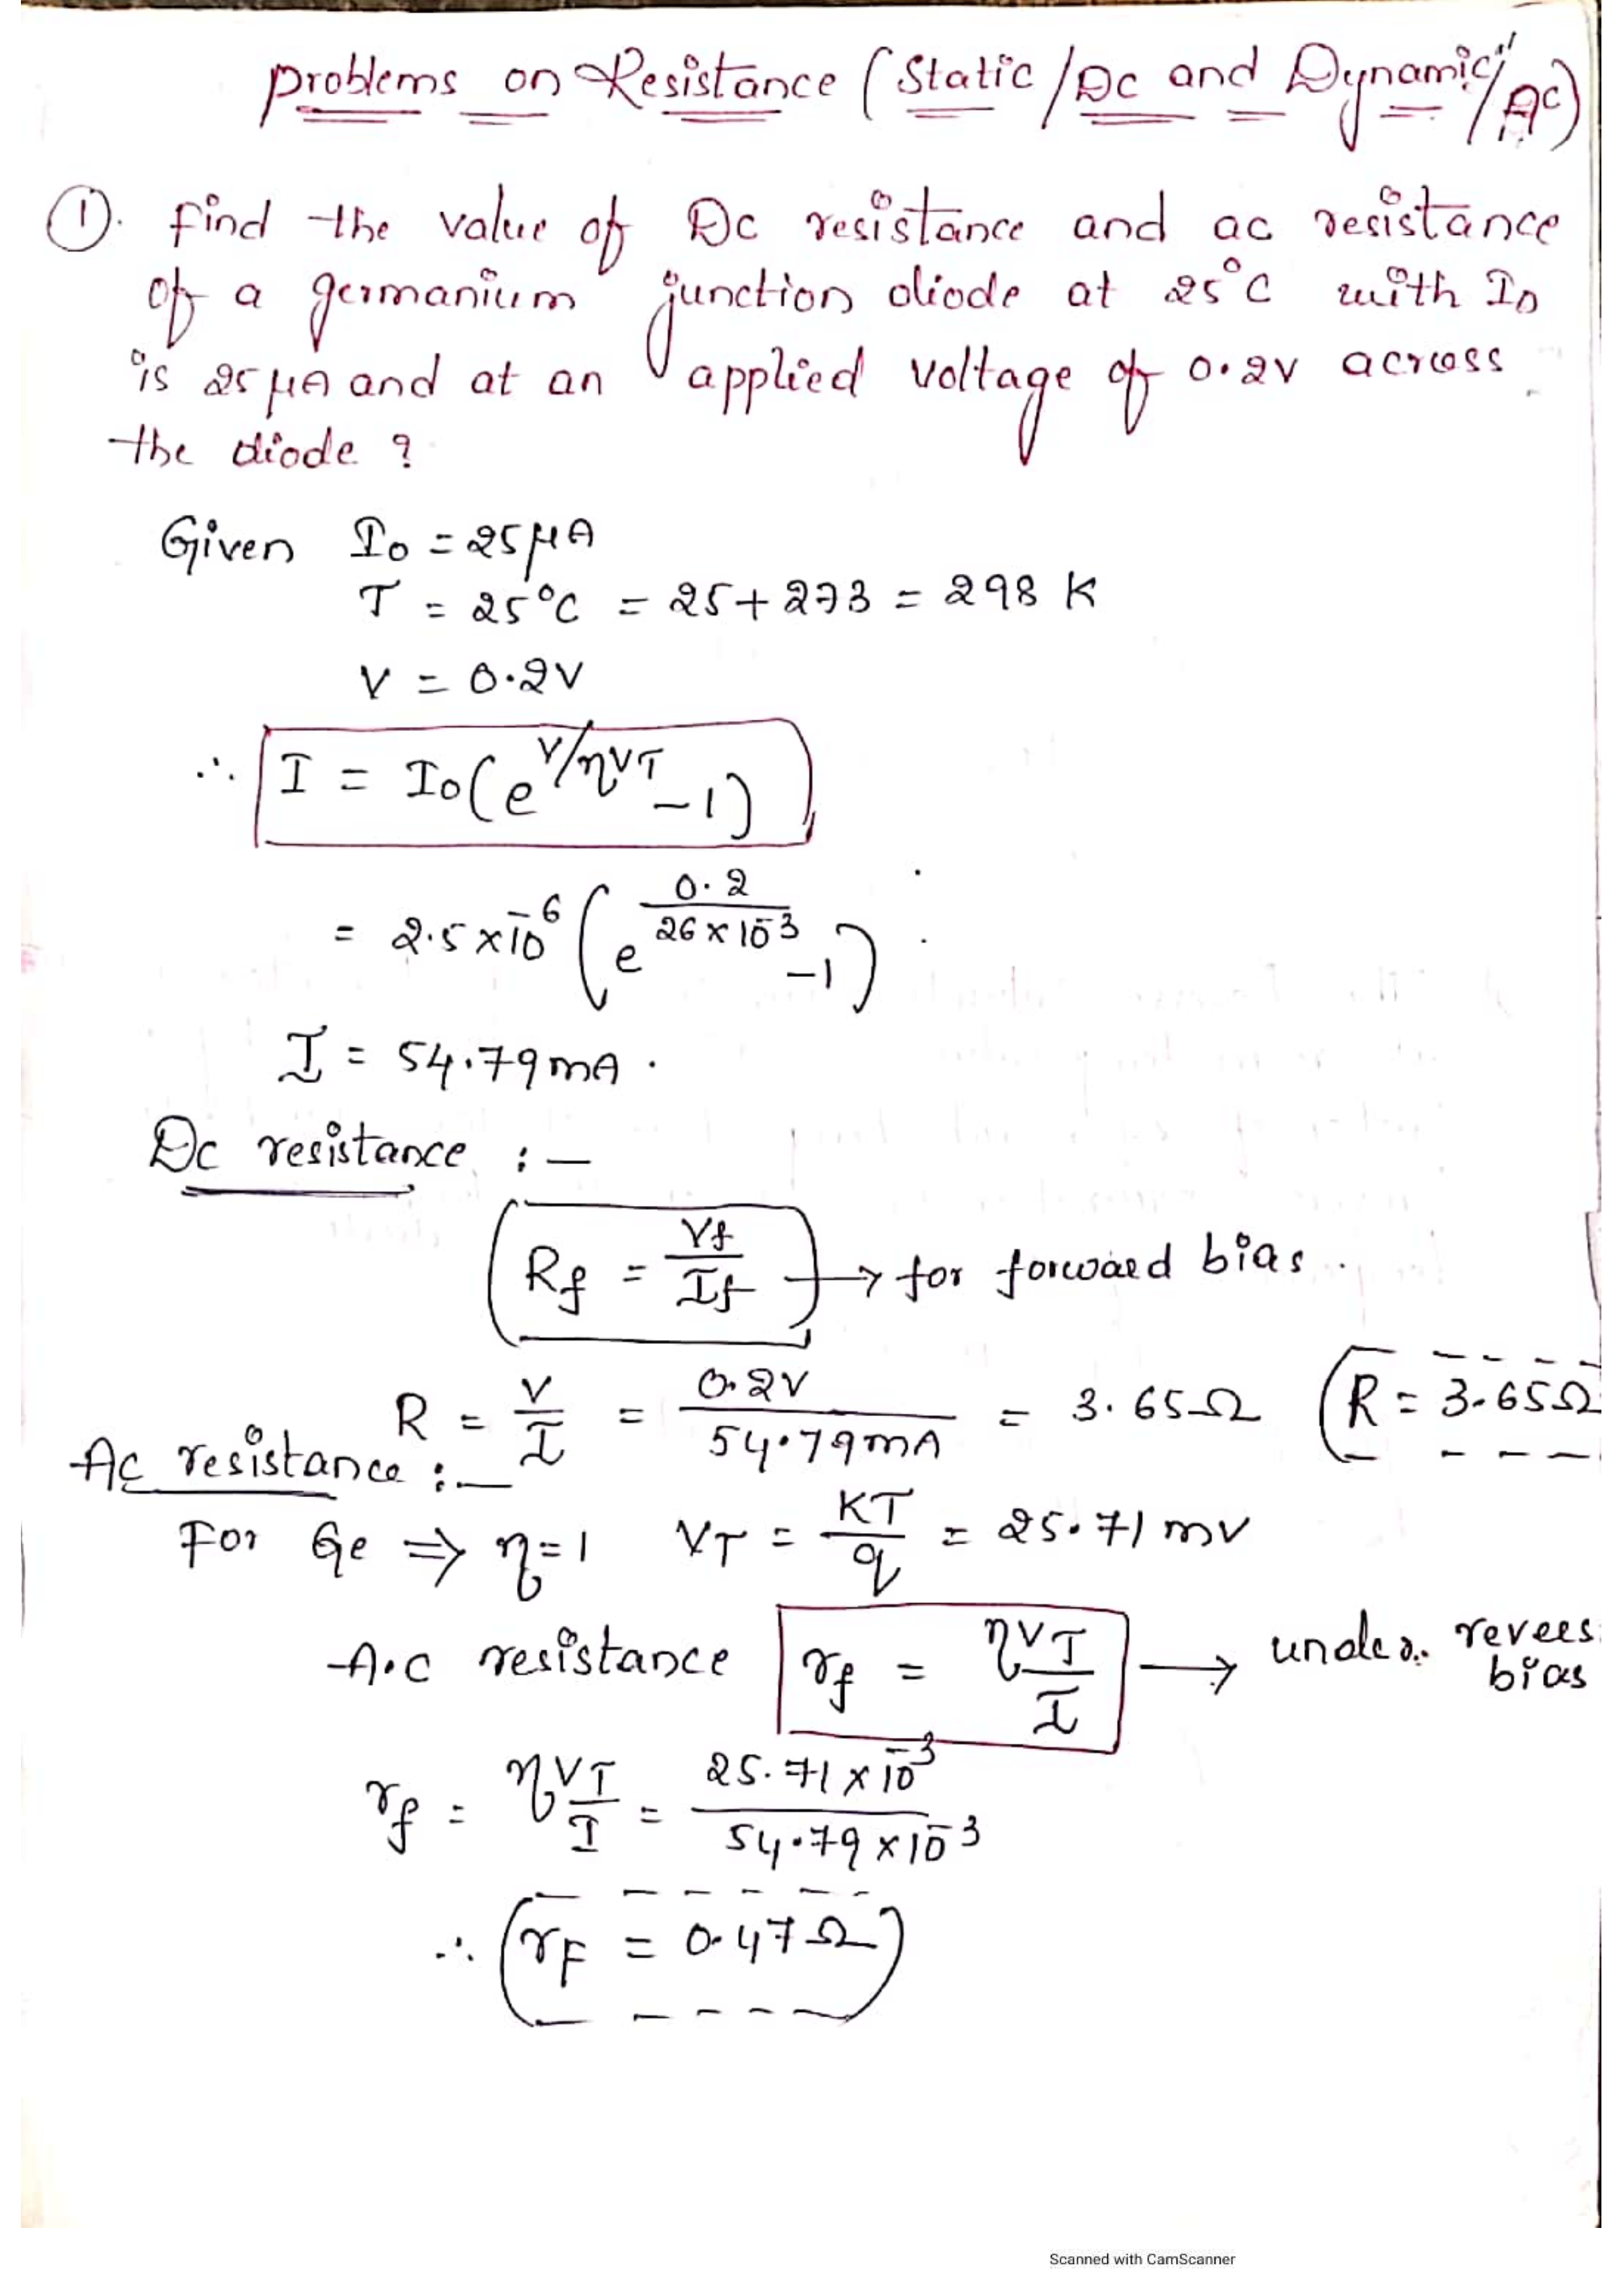 problems on Resistance (Static/Dc and Dynamic/AC)
①. find the value of Dc resistance and ac resistance
of a germanium junction diode at 25°C with I0
is 25 μA and at an applied voltage of 0.2V across
the diode ?
Given I0 = 25μA
T = 25°C = 25 + 273 = 298 K
V = 0.2V
∴ I = I0(e^V/ηVT - 1)
= 2.5 × 10^-6 (e^0.2/26 × 10^-3 - 1)
I = 54.79 mA.
Dc resistance :-
Rf = Vf/If → for forward bias.
R = V/I = 0.2V/54.79mA = 3.65Ω (R = 3.65Ω
Ac resistance :-
For Ge ⇒ η = 1 VT = KT/q = 25.71 mV
A.C resistance rf = ηVT/I → under revers bias
rf = ηVT/I = 25.71 × 10^-3/54.79 × 10^-3
∴ (rF = 0.47Ω)
Scanned with CamScanner